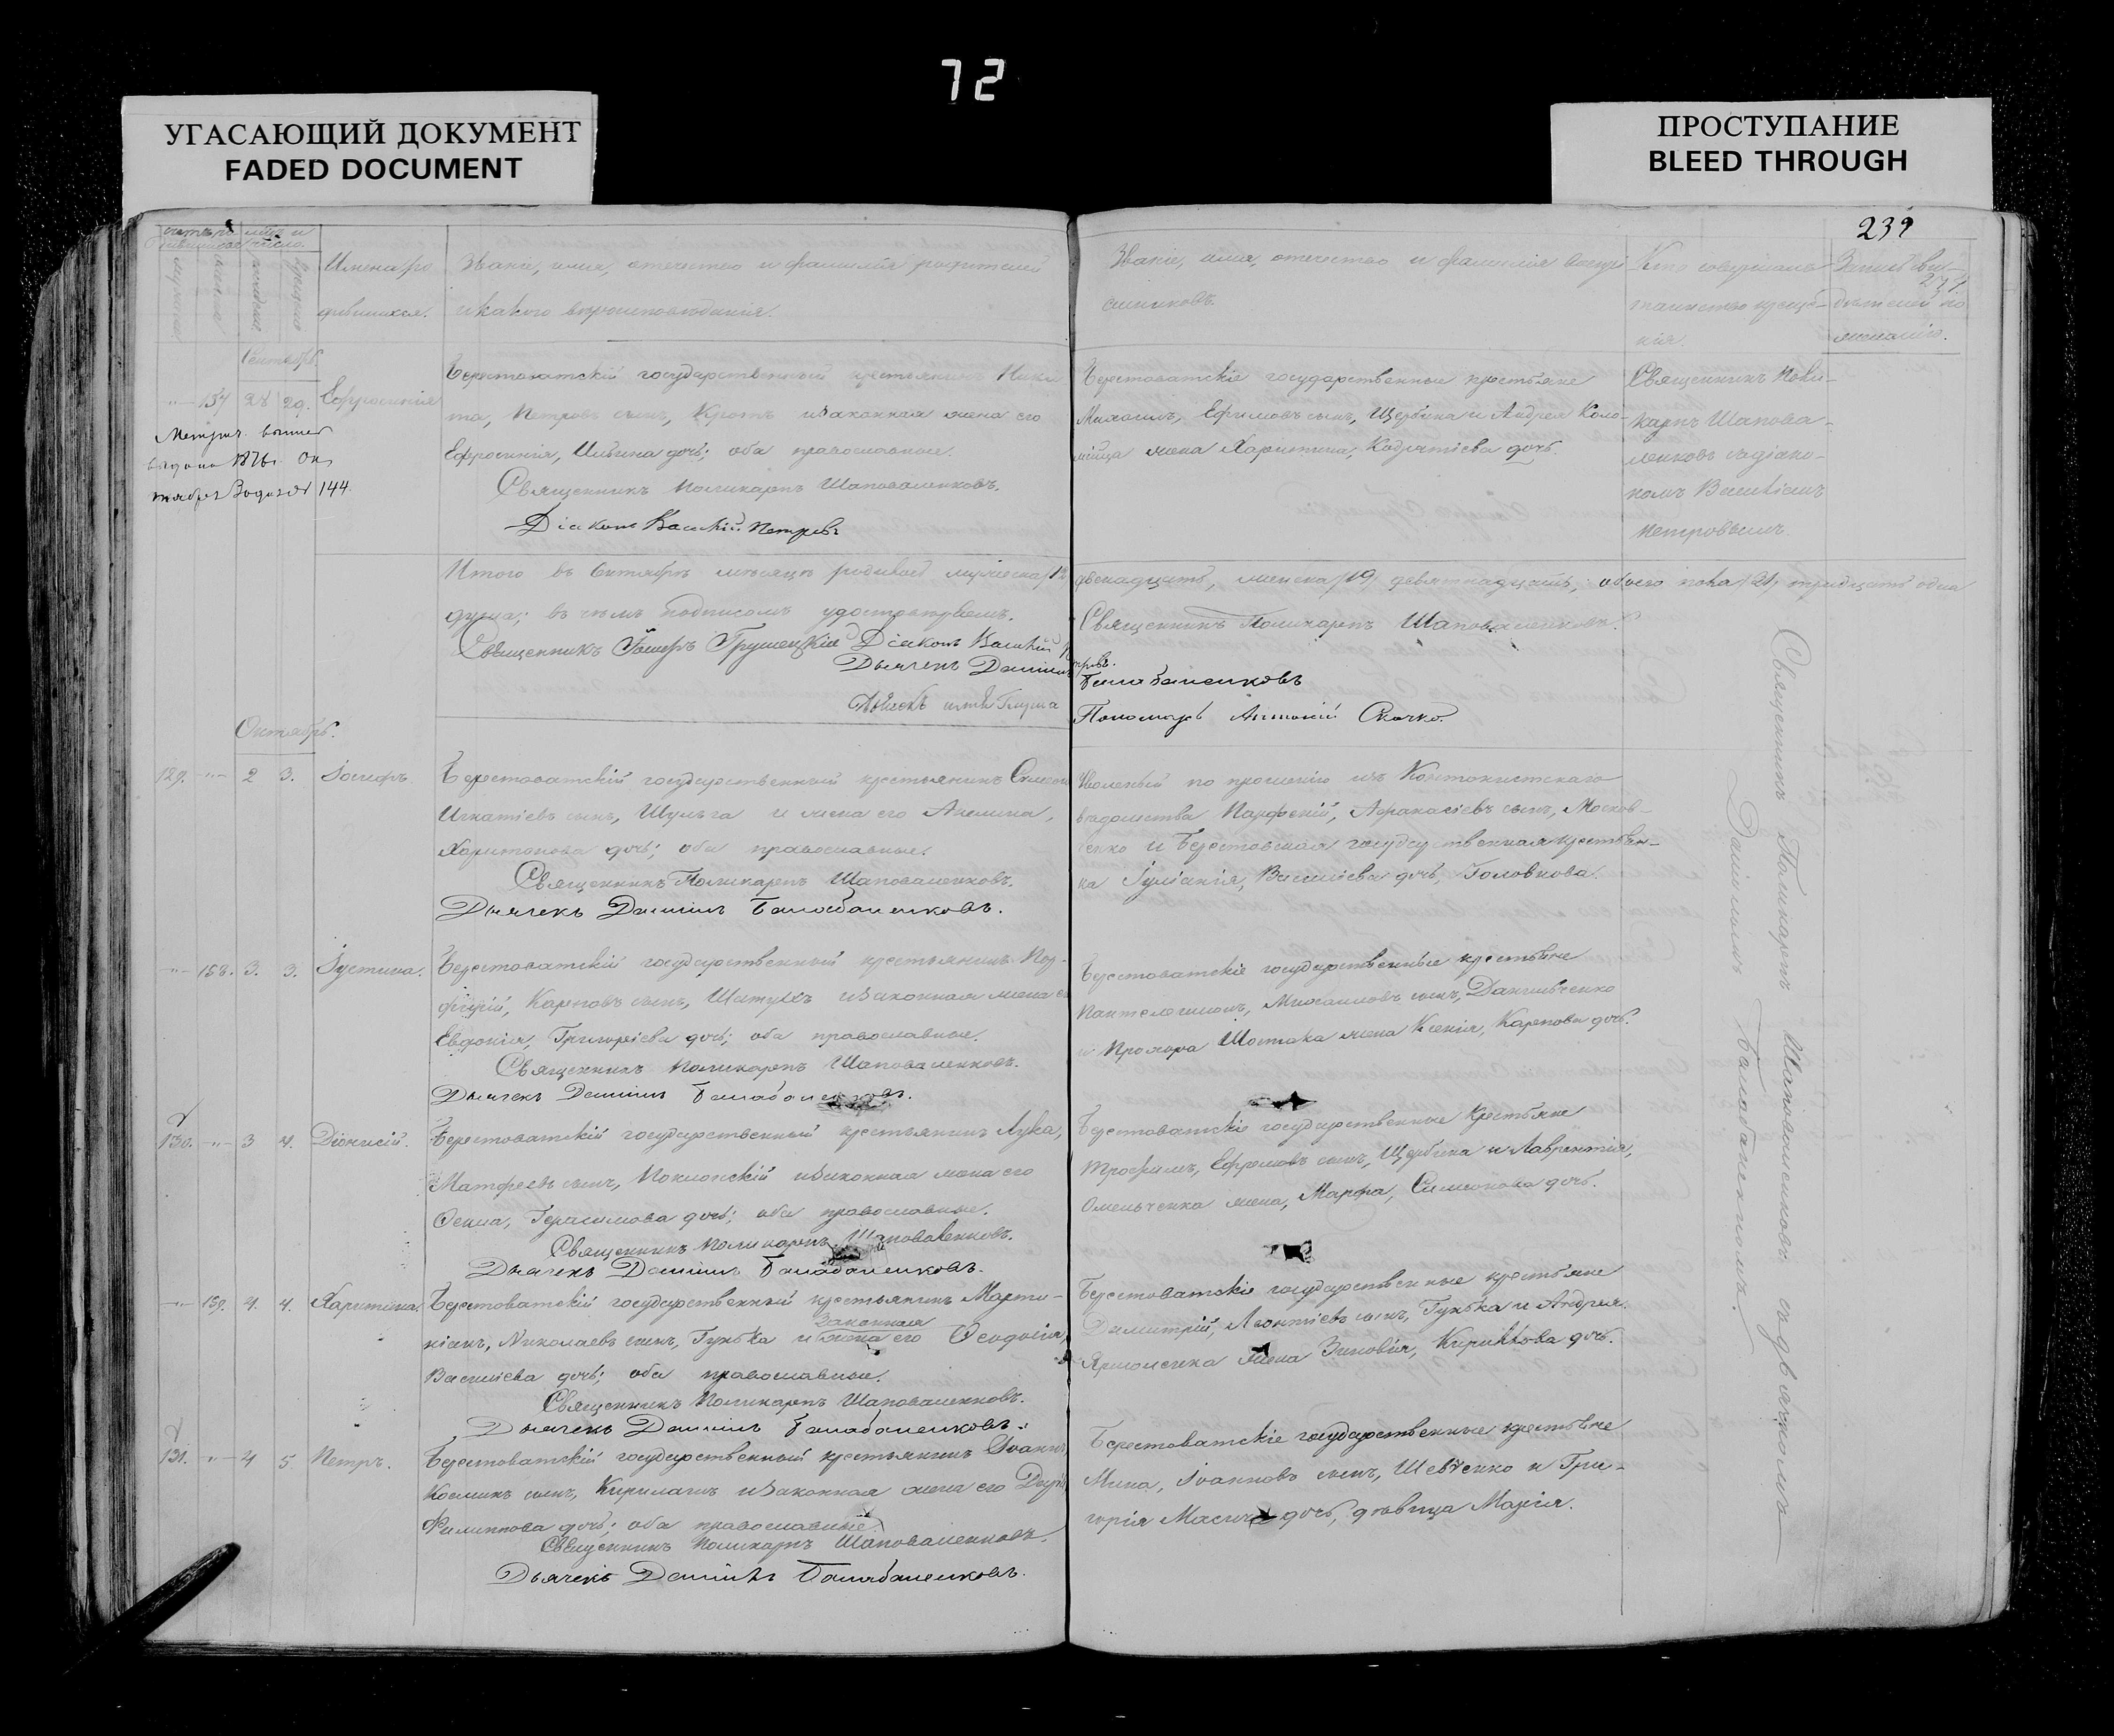 72
УГАСАЮЩИЙ ДОКУМЕНТ
FADED DOCUMENT
ПРОСТУПАНИЕ
BLEED THROUGH
239
Имена ро
дившихся.
Званіе, имя, отечество и фамилія родителей
и какого вѣроисповѣданія.
Званіе, имя, отечество и фамилія воспрі
емниковъ.
Кто совершалъ
таинство креще-
нія.
Сентябрь.
157 28 29. Ефросинія
Берестоватскій государственный крестьянинъ Ники
та, Петровъ сынъ, Кротъ и законная жена его
Ефросинія, Ильина дочь; оба православные.
Священникъ Поликарпъ Шаповаленковъ.
Діаконъ Василій Петровъ
144
Берестоватскіе государственные крестьяне
Ефимовъ сынъ, Щербина и Андрея Коло-
мійца жена Харитина, дочь.
Священникъ Поли-
карпъ Шапова-
ленковъ съ діако-
номъ Василіемъ
Петровымъ.
Итого въ Сентябрѣ мѣсяцѣ родилось мужеска /12
двенадцать, женска /19/ девятнадцать, обоего пола тридцать одна
душа; въ чемъ подписомъ удостовѣряемъ.
Священникъ Грушецкій Діаконъ Василій Петровъ.
Священникъ Поликарпъ Шаповаленковъ.
Дьячекъ Даніилъ Балабаненковъ
Пономарь Антоній Скачко.
Октябрь.
129. -"- 2 3. Іосифъ.
Берестоватскій государственный крестьянинъ Симеонъ
Игнатіевъ сынъ, Шульга и жена его
Харитонова дочь; оба православные.
Священникъ Поликарпъ Шаповаленковъ.
Дьячекъ Даніилъ Балабаненковъ.
Уволенный по прошенію изъ
вѣдомства Парфеній, Афанасіевъ сынъ, Москов-
ченко и Берестовская государственная крестьян-
ка Іуліанія, Василіева дочь, Головкова.
-"- 158. 3. 3. Іустина.
Берестоватскій государственный крестьянинъ Пор-
фирій, Карповъ сынъ, и законная жена его
Евдокія, Григоріева дочь; оба православные.
Священникъ Поликарпъ Шаповаленковъ.
Дьячекъ Даніилъ Балабаненковъ.
Берестоватскіе государственные крестьяне
Пантелеимонъ, Михаиловъ сынъ, Данильченко
и Прохора Шостака жена Ксенія, Карпова дочь.
130. -"- 3 4. Діонисій.
Берестоватскій государственный крестьянинъ Лука,
Матфеевъ сынъ, и законная жена его
Герасимова дочь; оба православные.
Священникъ Поликарпъ Шаповаленковъ.
Дьячекъ Даніилъ Балабаненковъ.
Берестоватскіе государственные крестьяне
Трофимъ, Ефремовъ сынъ, Щербина и Лаврентія,
Омельченка жена, Марфа, Симеонова дочь.
-"- 159. 4. 4. Харитина.
Берестоватскій государственный крестьянинъ Марти-
ніанъ, Николаевъ сынъ, Гунька и законная жена его Феодосія,
Василіева дочь; оба православные.
Священникъ Поликарпъ Шаповаленковъ.
Дьячекъ Даніилъ Балабаненковъ.
Берестоватскіе государственные крестьяне
Димитрій, Леонтіевъ сынъ, Гунька и Андрея
Ярмоленка жена Зиновія, Кириллова дочь.
131. -"- 4 5. Петръ.
Берестоватскій государственный крестьянинъ Іоаннъ
Косминъ сынъ, и законная жена его
Филиппова дочь; оба православные.
Священникъ Поликарпъ Шаповаленковъ.
Дьячекъ Даніилъ Балабаненковъ.
Берестоватскіе государственные крестьяне
Мина, Іоанновъ сынъ, Шевченко и Гри-
горія дочь, дѣвица Марія.
Священникъ Поликарпъ Шаповаленковъ съ дьячкомъ
Даніиломъ Балабаненкомъ.